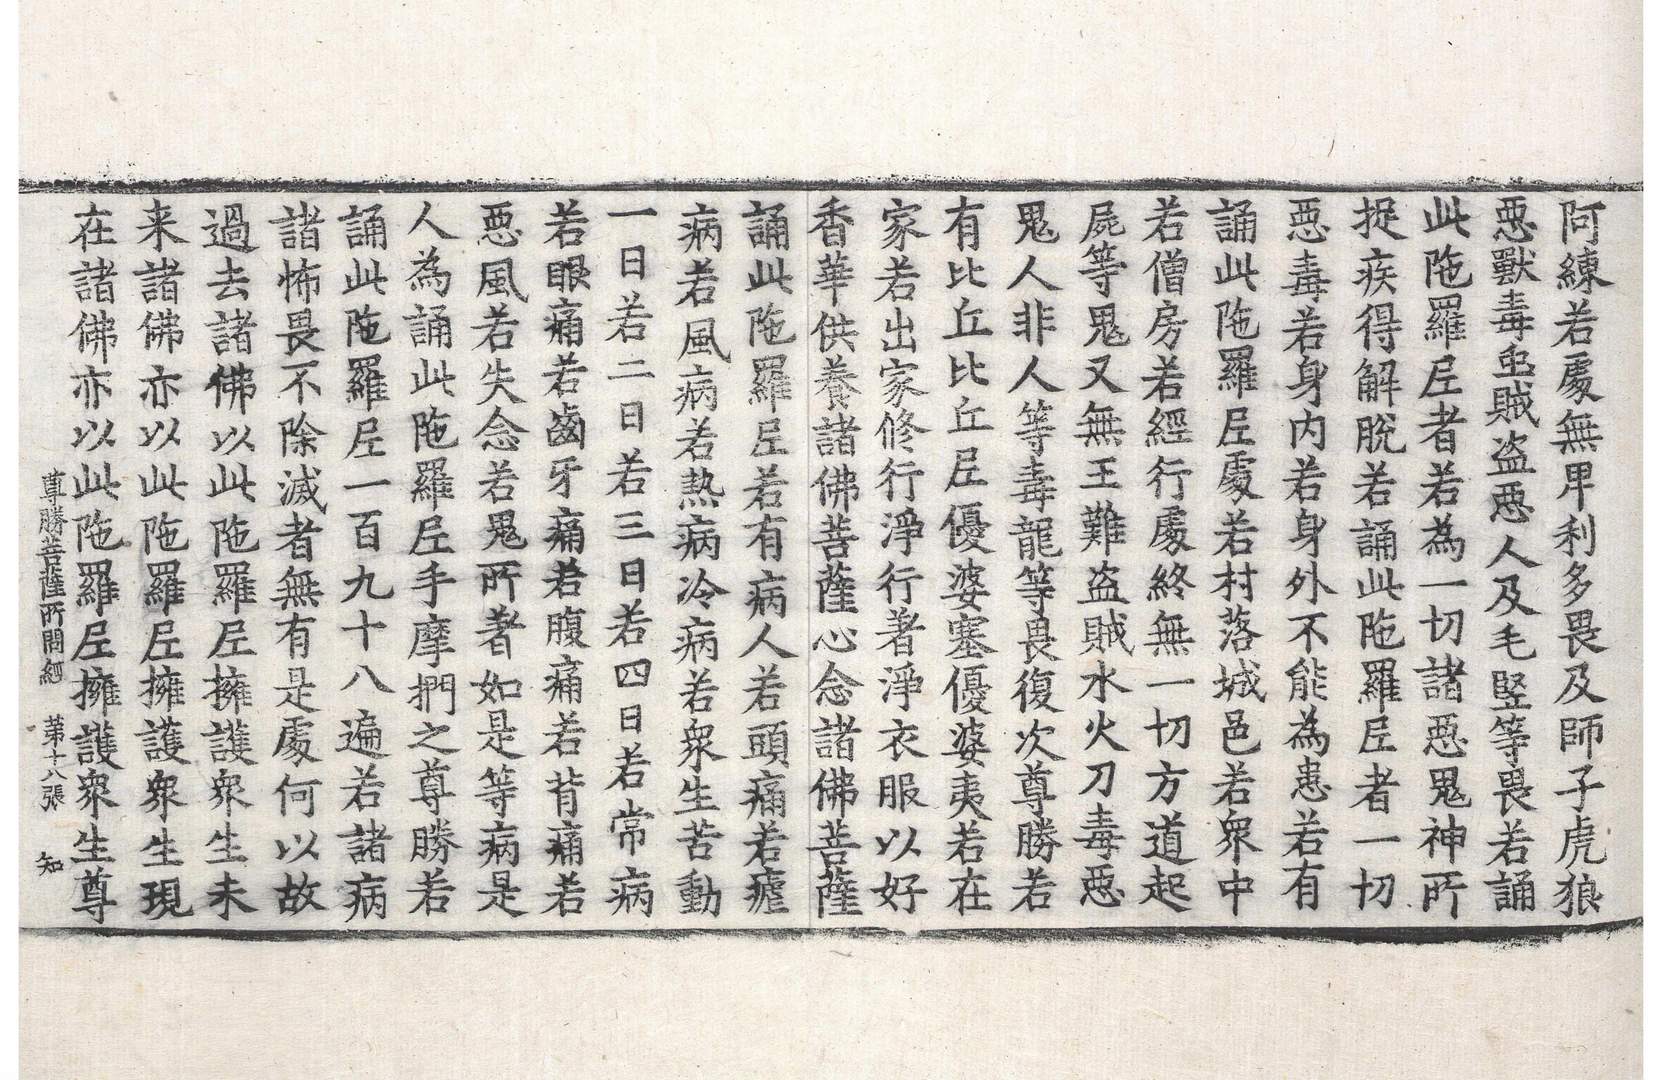 阿練若處無甲利多畏及師子虎狼
惡獸毒䖝賊盗惡人及毛竪等畏若誦
此陁羅尼者若為一切諸惡鬼神所
捉疾得解脫若誦此陁羅尼者一切
惡毒若身內若身外不能為患若有
誦此陁羅尼處若村落城邑若衆中
若僧房若經行處終無一切方道起
屍等鬼又無王難盗賊水火刀毒惡
鬼人非人等毒龍等畏復次尊勝若
有比丘比丘尼優婆塞優婆夷若在
家若出家修行淨行著淨衣服以好
香華供養諸佛菩薩心念諸佛菩薩
誦此陁羅尼若有病人若頭痛若瘧
病若風病若熱病冷病若衆生苦動
一日若二日若三日若四日若常病
若眼痛若齒牙痛若腹痛若背痛若
惡風若失念若鬼所著如是等病是
人為誦此陁羅尼手摩捫之尊勝若
誦此陁羅尼一百九十八遍若諸病
諸怖畏不除滅者無有是處何以故
過去諸佛以此陁羅尼擁護衆生未
来諸佛亦以此陁羅尼擁護衆生現
在諸佛亦以此陁羅尼擁護衆生尊
尊勝菩薩所問經 第十八張 知